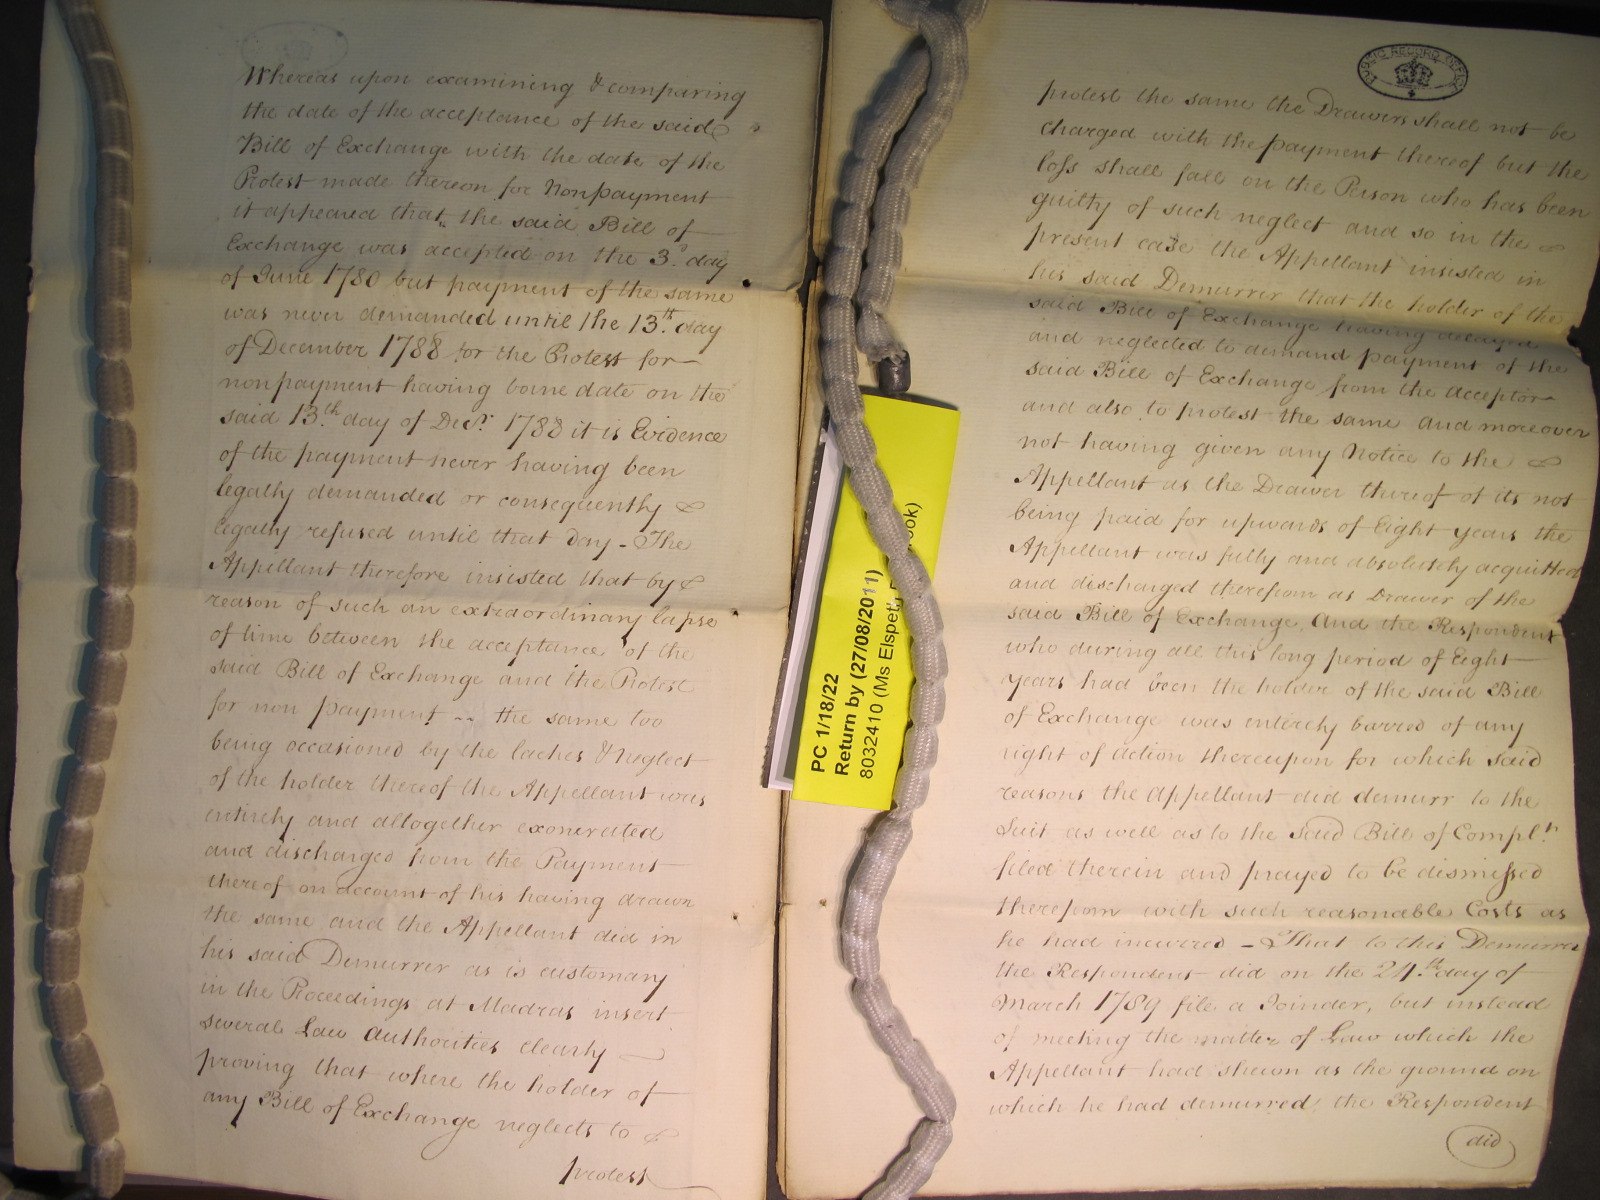 Whereas upon examining & comparing
the date of the acceptance of the said
Bill of Exchange with the date of the
Protest made thereon for Nonpayment
it appeared that the said Bill of
Exchange was accepted on the 3.d day
of June 1780 but payment of the same
was never demanded until the 13.th day
of December 1788 for the Protest for
nonpayment having borne date on the
said 13.th day of Dec.r 1788 it is Evidence
of the payment never having been
legally demanded or consequently
legally refused until that day - The
Appellant therefore insisted that by
reason of such an extraordinary lapse
of time between the acceptance of the
said Bill of Exchange and the Protest
for non payment -- the same too
being occasioned by the laches & Neglect
of the holder thereof the Appellant was
entirely and altogether exonerated
and discharged from the Payment
thereof on account of his having drawn
the same and the Appellant did in
his said Demurrer as is customary
in the Proceedings at Madras insert
several Law Authorities clearly
proving that where the holder of
any Bill of Exchange neglects to
protest
PUBLIC RECORD OFFICE
protest the same the Drawers shall not be
charged with the payment thereof but the
loss shall fall on the Person who has been
guilty of such neglect and so in the
present case the Appellant insisted in
his said Demurrer that the holder of the
said Bill of Exchange having delayed
and neglected to demand payment of the
said Bill of Exchange from the Acceptor
and also to protest the same and moreover
not having given any Notice to the
Appellant as the Drawer thereof of its not
being paid for upwards of Eight years the
Appellant was fully and absolutely acquitted
and discharged therefrom as Drawer of the
said Bill of Exchange. And the Respondent
who during all this long period of Eight
years had been the holder of the said Bill
of Exchange was entirely barred of any
right of Action thereupon for which said
reasons the Appellant did demurr to the
Suit as well as to the said Bill of Compl.t
filed therein and prayed to be dismissed
therefrom with such reasonable Costs as
he had incurred - That to this Demurrer
the Respondent did on the 24.th day of
March 1789 file a Joinder, but instead
of meeting the matter of Law which the
Appellant had shewn as the ground on
which he had demurred, the Respondent
did
PC 1/18/22
Return by (27/08/2011)
8032410 (Ms Elspeth